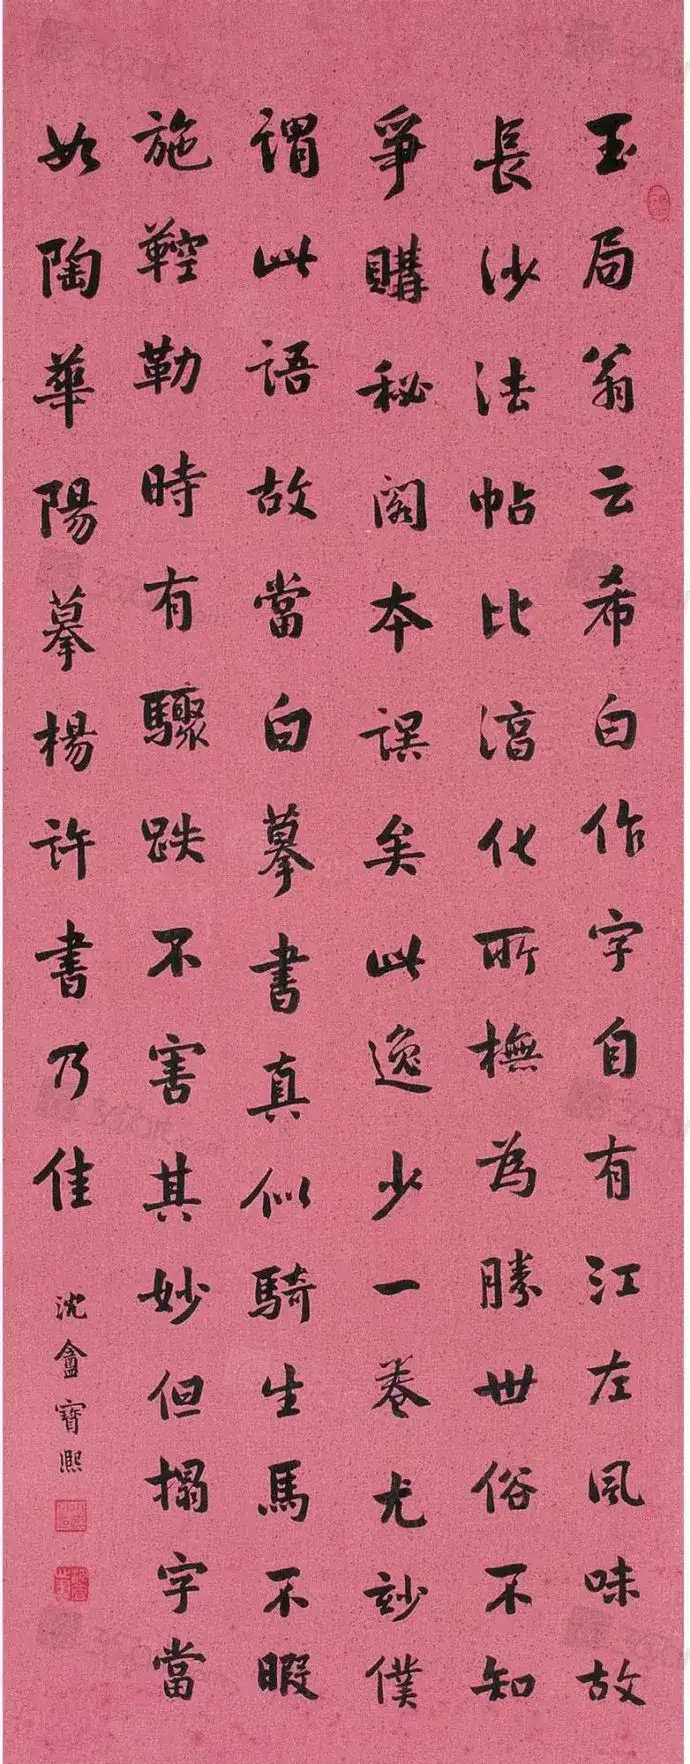 玉局翁云希白作字自有江左風味故
長沙法帖比淳化所橅為勝世俗不知
爭購秘閣本誤矣此逸少一卷尤妙僕
謂此語故當白摹書真似騎生馬不暇
施鞚勒時有驟跌不害其妙但搨字當
如陶華陽摹楊許書乃佳
沈盦寶熙